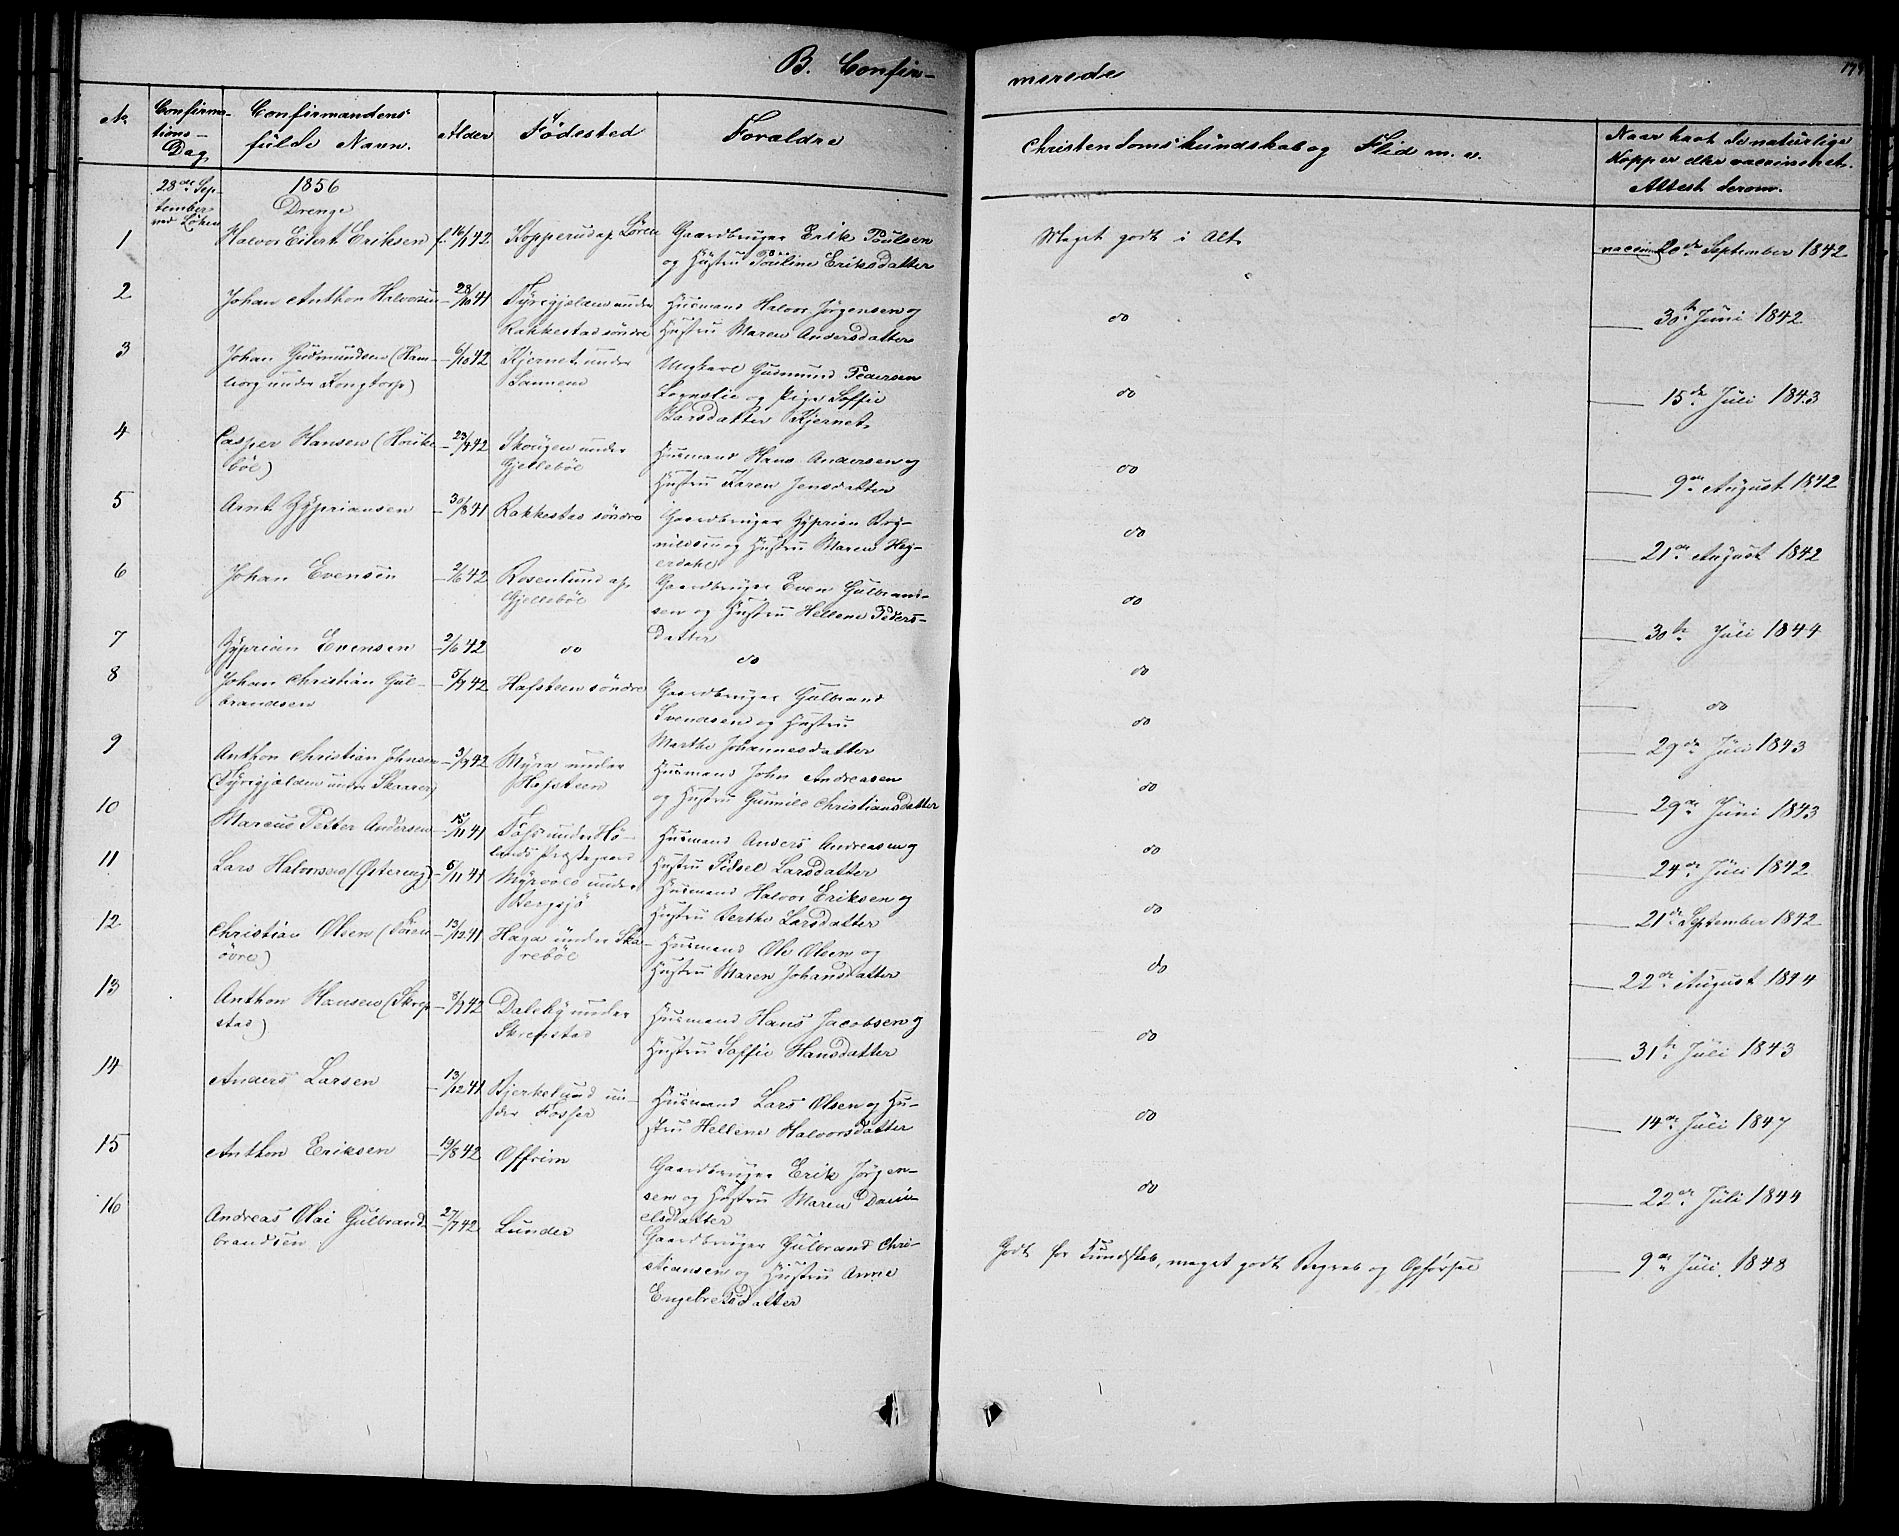 B. Confir-
merede
No
Confirma-
tions-
Dag
Confirmandens
fulde Navn.
Alder
Fødested
Forældre
Christendomskundskab og Flid m. v.
Naar havt de naturlige
Kopper eller vaccineret.
Attest derom.
28de Sep-
tember
ved Løken
1856
Drenge
1 Halvor Eilert Eriksen f. 16/1 42 Kopperud ap. Løren Gaardbruger Erik Poulsen
og Hustru Pauline Eriksdatter
Meget godt i Alt.
vaccin. 20de September 1842
2 Johan Anthon Halvorsen - 28/10 41 Fyrigjelden under
Rakkestad søndre
Husmand Halvor Jørgensen og
Hustru Maren Andersdatter
do
30te Juni 1842
3 Johan Gudmundsen (Ham-
borg under Kongtorp)
- 6/10 42 Kjernet under
Ungkarl Gudmund Pedersen
og Pige Soffie
Larsdatter Kjernet
do
15de Juli 1843
4 Casper Hansen (Houke-
bøl)
- 23/7 42 Skougen under
Gjellebøl
Husmand Hans Andersen og
Hustru Karen Jensdatter
do
9de August 1842
5 Arnt Zyprianesen - 30/8 41 Rakkestad søndre Gaardbruger Zyprian Bry-
nildsen og Hustru Maren Hey-
erdahl
do
21de August 1842
6 Johan Evensen - 2/6 42 Rosenlund ap.
Gjellebøl
Gaardbruger Even Gulbrand-
sen og Hustru Hellene Peders-
datter
do
30te Juli 1844
7 Zyprian Evensen - 2/6 42 do do
do
do
8 Johan Christian Gul-
brandsen
- 5/7 42 Hafsteen søndre Gaardbruger Gulbrand
Svendsen og Hustru
Marthe Johannesdatter
do
29de Juli 1843
9 Anthon Christian Johnsen
(Fyrigjelden under Skaarer)
- 3/9 42 Myra under
Hafsteen
Husmand John Andreasen
og Hustru Gunnild Christiansdatter
do
29de Juni 1843
10 Marcus Petter Andersen - 15/11 41 under Hø-
lands Præstegaard
Husmand Anders Andreasen og
Hustru Sidsel Larsdatter
do
24de Juli 1842
11 Lars Halvorsen (Østereng) - 5/11 41 Myrvold under
Bergsjø
Husmand Halvor Eriksen og
Hustru Berthe Larsdatter
do
21de September 1842
12 Christian Olsen (
øvre)
- 13/12 41 Haga under Ska-
rebøl
Husmand Ole Olsen og
Hustru Maren Johansdatter
do
22de August 1844
13 Anthon Hansen (Skrep-
stad)
- 8/9 42 Dalsby under
Skrepstad
Husmand Hans Jacobsen og
Hustru Soffie Hansdatter
do
31te Juli 1843
14 Anders Larsen - 13/12 41 Bjerkelund un-
der Fosser
Husmand Lars Olsen og Hu-
stru Hellene Halvorsdatter
do
14de Juli 1847
15 Anthon Eriksen - 19/8 42 Offrim Gaardbruger Erik Jørgen-
sen og Hustru Maren Dani-
elsdatter
do
22de Juli 1844
16 Andreas Olai Gulbrand-
brandsen
- 27/7 42 Lunder Gaardbruger Gulbrand Chri-
stiansen og Hustru Anne
Engebretsdatter
Godt for Kundskab, meget godt Begreb og Opførsel
9de Juli 1848